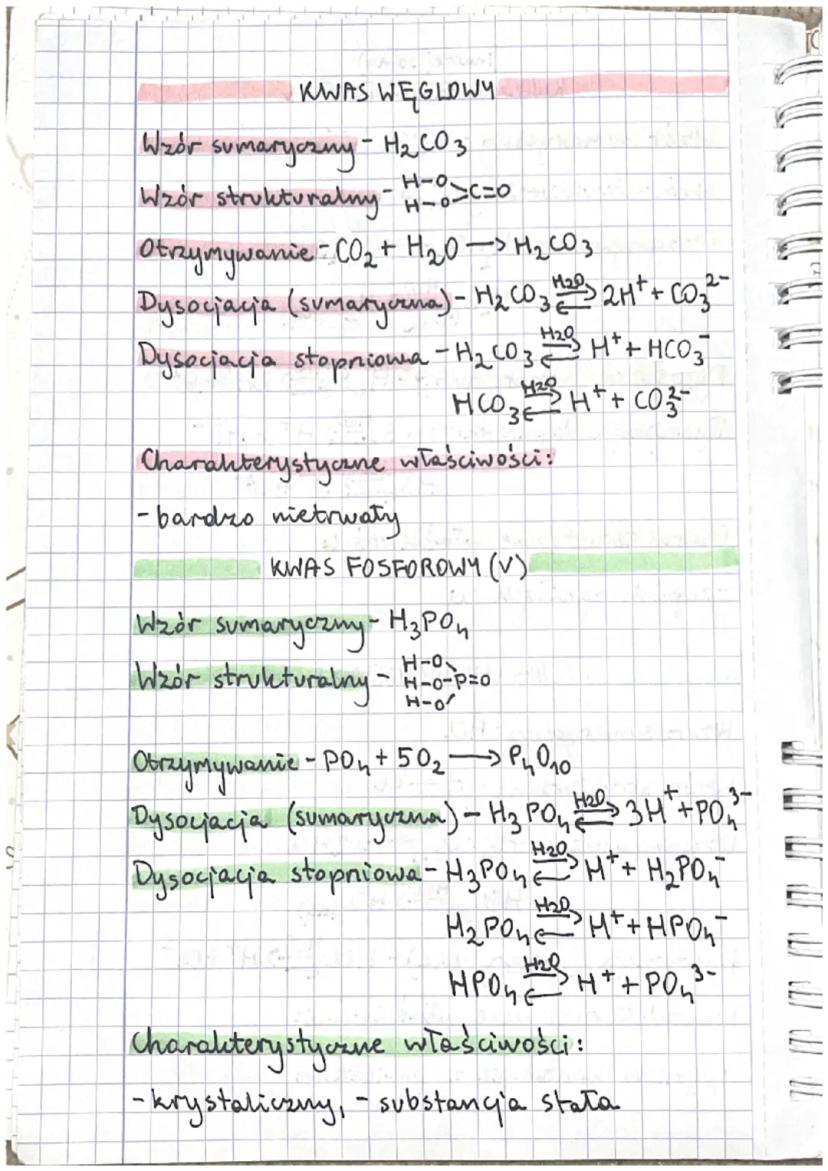 KWAS WĘGLOWY
Wzór sumaryczny - H₂CO₃
Wzór strukturalny - H-O H-O >C=O
Otrzymywanie - CO₂ + H₂O → H₂CO₃
Dysocjacja (sumaryczna) - H₂CO₃ ⇄ H₂O 2H⁺ + CO₃²⁻
Dysocjacja stopniowa - H₂CO₃ ⇄ H₂O H⁺ + HCO₃⁻
HCO₃ ⇄ H₂O H⁺ + CO₃²⁻
Charakterystyczne właściwości:
- bardzo nietrwały
KWAS FOSFOROWY (V)
Wzór sumaryczny - H₃PO₄
Wzór strukturalny - H-O\ H-O-P=O H-O/
Otrzymywanie - PO₄ + 5O₂ → P₄O₁₀
Dysocjacja (sumaryczna) - H₃PO₄ ⇄ H₂O 3H⁺ + PO₄³⁻
Dysocjacja stopniowa - H₃PO₄ ⇄ H₂O H⁺ + H₂PO₄⁻
H₂PO₄ ⇄ H₂O H⁺ + HPO₄⁻
HPO₄ ⇄ H₂O H⁺ + PO₄³⁻
Charakterystyczne właściwości:
- krystaliczny, - substancja stała